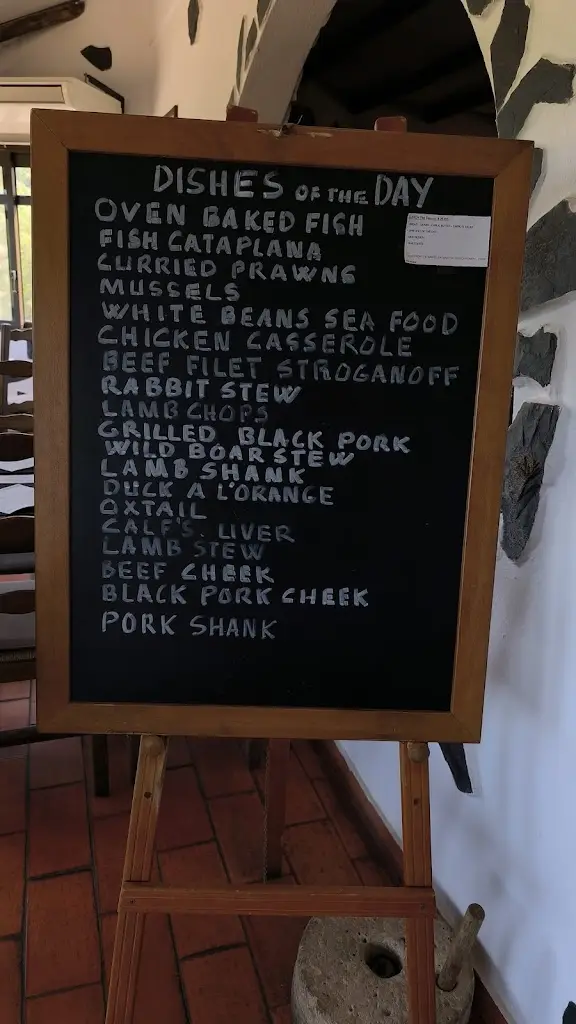 DISHES OF THE DAY
OVEN BAKED FISH
FISH CATAPLANA
CURRIED PRAWNS
MUSSELS
WHITE BEANS SEA FOOD
CHICKEN CASSEROLE
BEEF FILET STROGANOFF
RABBIT STEW
LAMB CHOPS
GRILLED BLACK PORK
WILD BOAR STEW
LAMB SHANK
DUCK A L'ORANGE
OXTAIL
CALF'S LIVER
LAMB STEW
BEEF CHEEK
BLACK PORK CHEEK
PORK SHANK